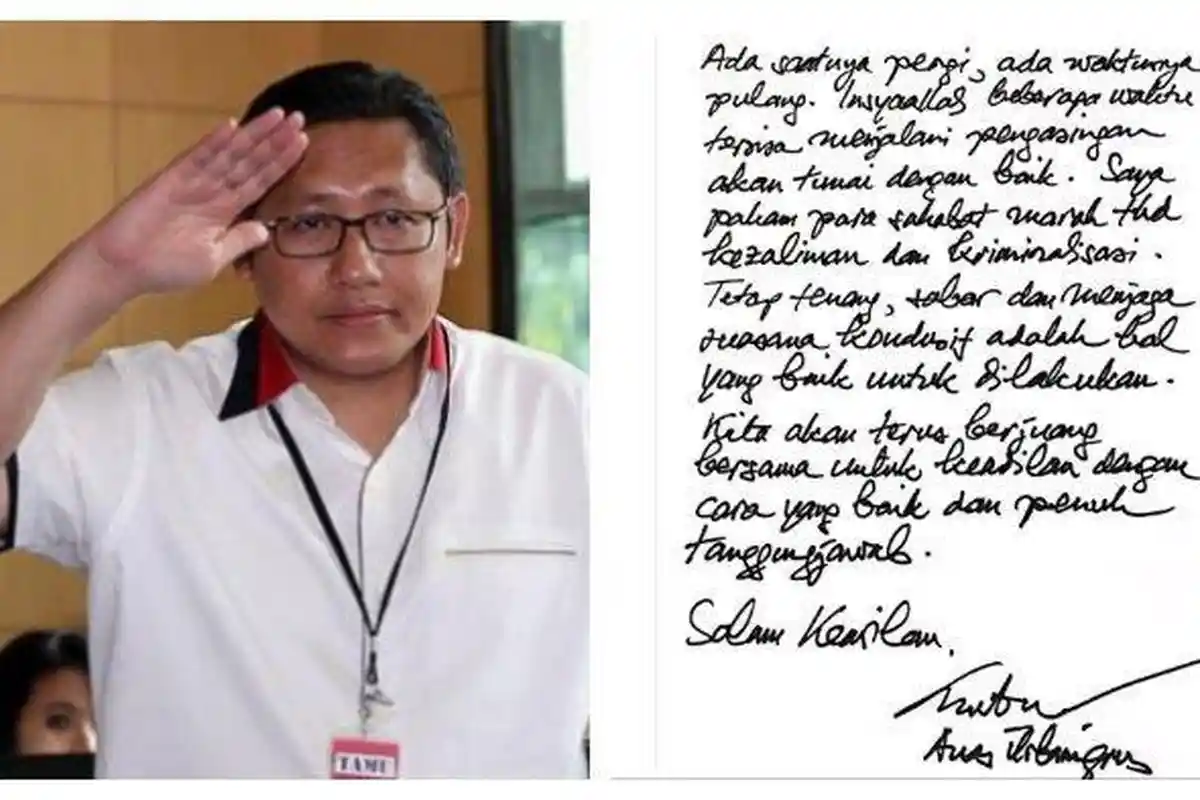 TAMU
Ada saatnya pergi, ada waktunya
pulang. Insyaallah beberapa waktu
tersisa menjalani pengasingan
akan tunai dengan baik. Saya
paham para sahabat marah thd
kezaliman dan kriminalisasi.
Tetap tenang, sabar dan menjaga
suasana kondusif adalah hal
yang baik untuk dilakukan.
Kita akan terus berjuang
bersama untuk keadilan dengan
cara yang baik dan penuh
tanggungjawab.
Salam Keadilan,
Anas Urbaningrum